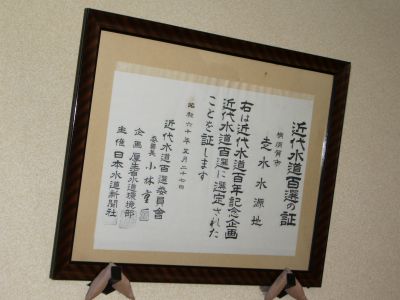 近代水道百選の証
横須賀市
走水水源地
右は近代水道百年記念企画
近代水道百選に選定された
ことを証します
昭和六十年五月二十七日
近代水道百選委員會
委員長 小林重一
企画 厚生省水道環境部
主催 日本水道新聞社